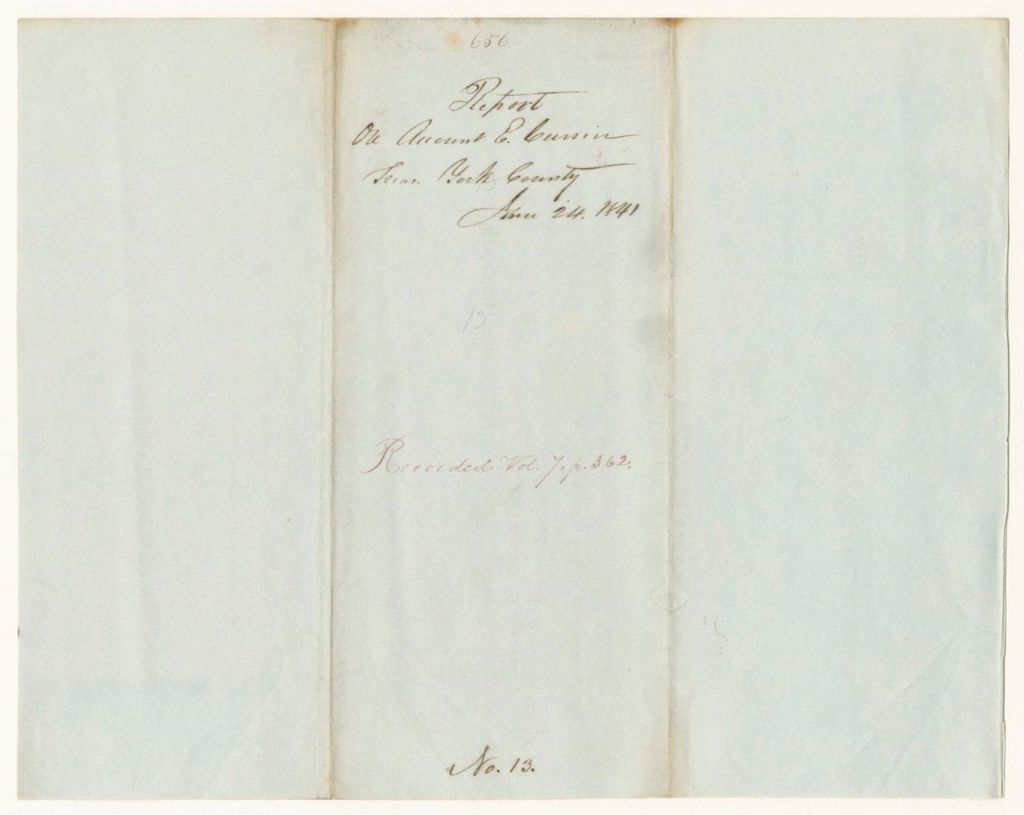 656.
Report
On Account E. Currier
Treas. York County
June 24. 1841
13
Recorded Vol. 7, p. 362.
No. 13.